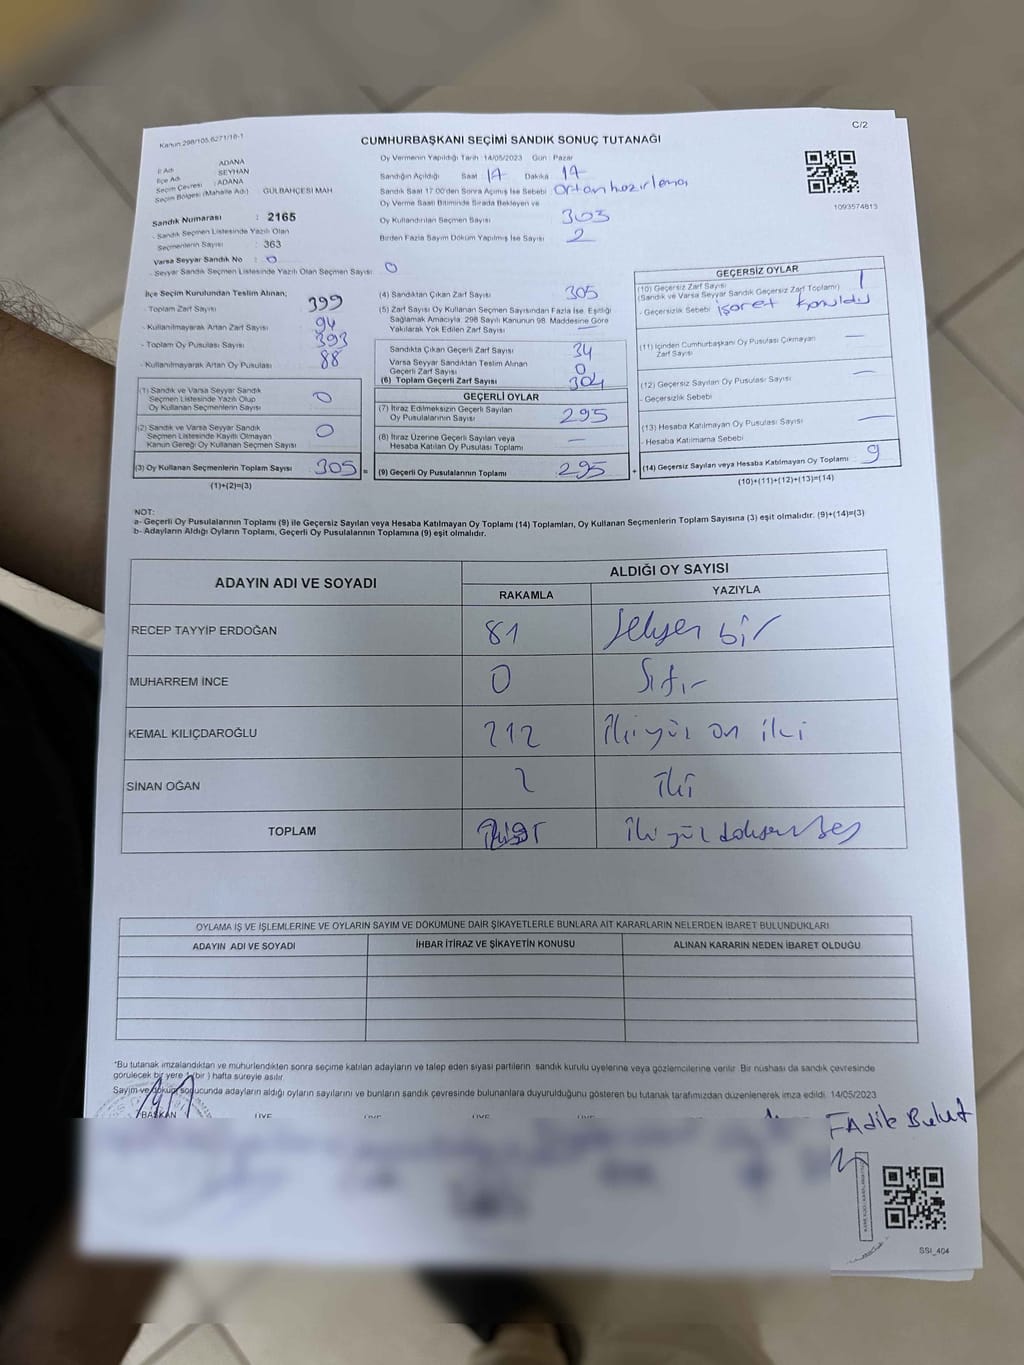 C/2
Kanun.298/105.6271/16-1
CUMHURBAŞKANI SEÇİMİ SANDIK SONUÇ TUTANAĞI
İl Adı : ADANA
İlçe Adı : SEYHAN
Seçim Çevresi : ADANA
Seçim Bölgesi (Mahalle Adı) : GÜLBAHÇESİ MAH.
Sandık Numarası : 2165
- Sandık Seçmen Listesinde Yazılı Olan
Seçmenlerin Sayısı : 363
Varsa Seyyar Sandık No : 0
- Seyyar Sandık Seçmen Listesinde Yazılı Olan Seçmen Sayısı : 0
Oy Vermenin Yapıldığı Tarih :14/05/2023 Gün : Pazar
Sandığın Açıldığı Saat 17 Dakika 17
Sandık Saat 17:00'den Sonra Açılmış İse Sebebi Ortan hazırlema
Oy Verme Saati Bitiminde Sırada Bekleyen ve
Oy Kullandırılan Seçmen Sayısı 303
Birden Fazla Sayım Döküm Yapılmış İse Sayısı 2
1093574813
İlçe Seçim Kurulundan Teslim Alınan;
- Toplam Zarf Sayısı 399
- Kullanılmayarak Artan Zarf Sayısı 94
- Toplam Oy Pusulası Sayısı 393
- Kullanılmayarak Artan Oy Pusulası 88
(1) Sandık ve Varsa Seyyar Sandık
Seçmen Listesinde Yazılı Olup
Oy Kullanan Seçmenlerin Sayısı 0
(2) Sandık ve Varsa Seyyar Sandık
Seçmen Listesinde Kayıtlı Olmayan
Kanun Gereği Oy Kullanan Seçmen Sayısı 0
(3) Oy Kullanan Seçmenlerin Toplam Sayısı 305 =
(1)+(2)=(3)
(4) Sandıktan Çıkan Zarf Sayısı 305
(5) Zarf Sayısı Oy Kullanan Seçmen Sayısından Fazla İse, Eşitliği
Sağlamak Amacıyla, 298 Sayılı Kanunun 98. Maddesine Göre
Yakılarak Yok Edilen Zarf Sayısı —
Sandıkta Çıkan Geçerli Zarf Sayısı 34
Varsa Seyyar Sandıktan Teslim Alınan
Geçerli Zarf Sayısı 0
(6) Toplam Geçerli Zarf Sayısı 304
GEÇERLİ OYLAR
(7) İtiraz Edilmeksizin Geçerli Sayılan
Oy Pusulalarının Sayısı 295
(8) İtiraz Üzerine Geçerli Sayılan veya
Hesaba Katılan Oy Pusulası Toplamı —
(9) Geçerli Oy Pusulalarının Toplamı 295 +
GEÇERSİZ OYLAR
(10) Geçersiz Zarf Sayısı
(Sandık ve Varsa Seyyar Sandık Geçersiz Zarf Toplamı) 1
- Geçersizlik Sebebi işaret konuldu
(11) İçinden Cumhurbaşkanı Oy Pusulası Çıkmayan
Zarf Sayısı —
(12) Geçersiz Sayılan Oy Pusulası Sayısı —
- Geçersizlik Sebebi
(13) Hesaba Katılmayan Oy Pusulası Sayısı —
- Hesaba Katılmama Sebebi
(14) Geçersiz Sayılan veya Hesaba Katılmayan Oy Toplamı 9
(10)+(11)+(12)+(13)=(14)
NOT:
a- Geçerli Oy Pusulalarının Toplamı (9) ile Geçersiz Sayılan veya Hesaba Katılmayan Oy Toplamı (14) Toplamları, Oy Kullanan Seçmenlerin Toplam Sayısına (3) eşit olmalıdır. (9)+(14)=(3)
b- Adayların Aldığı Oyların Toplamı, Geçerli Oy Pusulalarının Toplamına (9) eşit olmalıdır.
ADAYIN ADI VE SOYADI ALDIĞI OY SAYISI
RAKAMLA YAZIYLA
RECEP TAYYİP ERDOĞAN 81 Seksen bir
MUHARREM İNCE 0 Sıfır
KEMAL KILIÇDAROĞLU 212 İkiyüz on iki
SİNAN OĞAN 2 iki
TOPLAM İki yüz doksan beş
OYLAMA İŞ VE İŞLEMLERİNE VE OYLARIN SAYIM VE DÖKÜMÜNE DAİR ŞİKAYETLERLE BUNLARA AİT KARARLARIN NELERDEN İBARET BULUNDUKLARI
ADAYIN ADI VE SOYADI İHBAR İTİRAZ VE ŞİKAYETİN KONUSU ALINAN KARARIN NEDEN İBARET OLDUĞU
*Bu tutanak imzalandıktan ve mühürlendikten sonra seçime katılan adayların ve talep eden siyasi partilerin sandık kurulu üyelerine veya gözlemcilerine verilir. Bir nüshası da sandık çevresinde
görülecek bir yere 1 (bir ) hafta süreyle asılır.
Sayım ve döküm sonucunda adayların aldığı oyların sayılarını ve bunların sandık çevresinde bulunanlara duyurulduğunu gösteren bu tutanak tarafımızdan düzenlenerek imza edildi. 14/05/2023
BAŞKAN ÜYE ÜYE ÜYE
FAdik Bulut
SSI_404